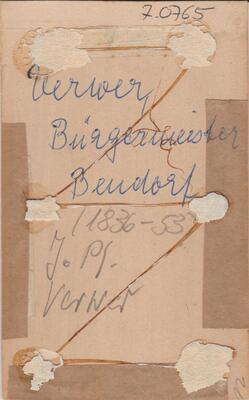 7.0765
Verwer,
Bürgermeister
Bendorf
(1836-53)
J. Pf.
Verwer